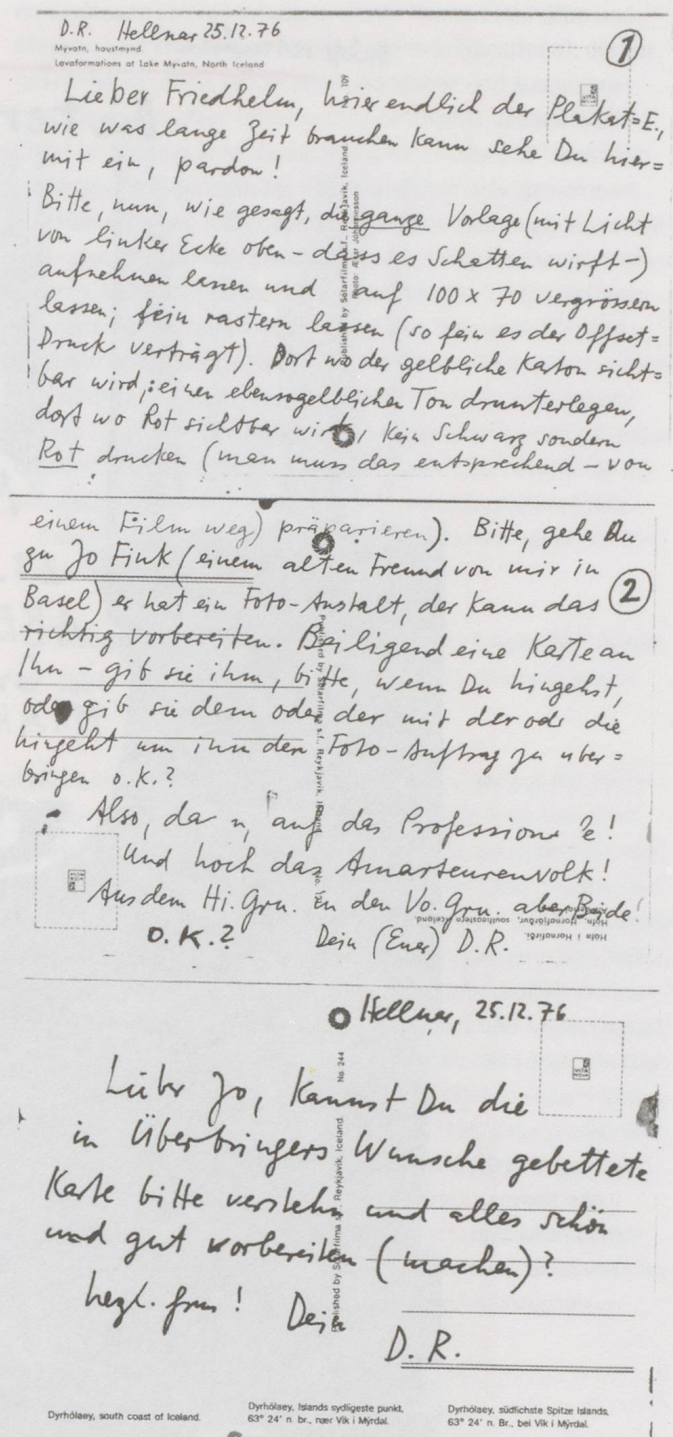 D.R. Hellnar 25.12.76
Myvatn, haustmynd
Lavaformations at Lake Myvatn, North Iceland
1
Lieber Friedhelm, hier endlich der Plakat=E.,
wie was lange Zeit brauchen kann sehe Du hier=
mit ein, pardon!
Bitte, nun, wie gesagt, die ganze Vorlage (mit Licht
von linker Ecke oben – dass es Schatten wirft –)
aufnehmen lassen und auf 100 x 70 vergrössern
lassen; fein rastern lassen (so fein es der Offset=
Druck verträgt). Dort wo der gelbliche Karton sicht=
bar wird,: einen ebensogelblichen Ton drunterlegen,
dort wo Rot sichtbar wird, kein Schwarz sondern
Rot drucken (man muss das entsprechend – von
109
Published by Sólarfilma s.f., Reykjavik, Iceland
einem Film weg) präparieren). Bitte, gehe Du
zu Jo Fink (einem alten Freund von mir in
Basel) er hat ein Foto-Anstalt, der kann das
2
richtig vorbereiten. Beiligend eine Karte an
Ihn – gib sie ihm, bitte, wenn Du hingehst,
oder gib sie dem oder der mit der odr die
hingeht um ihm den Foto-Auftrag zu über=
bringen o.k.?
Also, da auf das
Und hoch das Amarteurenvolk!
Aus dem Hi.Gru. in den Vo.Gru. aber Beide!
O.K.? Dein (Euer) D.R.
Published by Sólarfilma s.f., Reykjavik, Iceland
Höfn í Hornafirði.
Höfn, Hornafjörður, southeastern Iceland
Hellnar, 25.12.76
Lieber Jo, kannst Du die
in Überbringers Wunsche gebettete
Karte bitte verstehn und alles schön
und gut vorbereiten (machen)?
hezl. grus! Dein
D.R.
Published by Sólarfilma s.f., Reykjavik, Iceland. No. 244
Dyrhólaey, south coast of Iceland.
Dyrhólaey, Islands sydligeste punkt,
63° 24' n. br., nær Vik i Mýrdal.
Dyrhólaey, südlichste Spitze Islands,
63° 24' n. Br., bei Vik i Mýrdal.